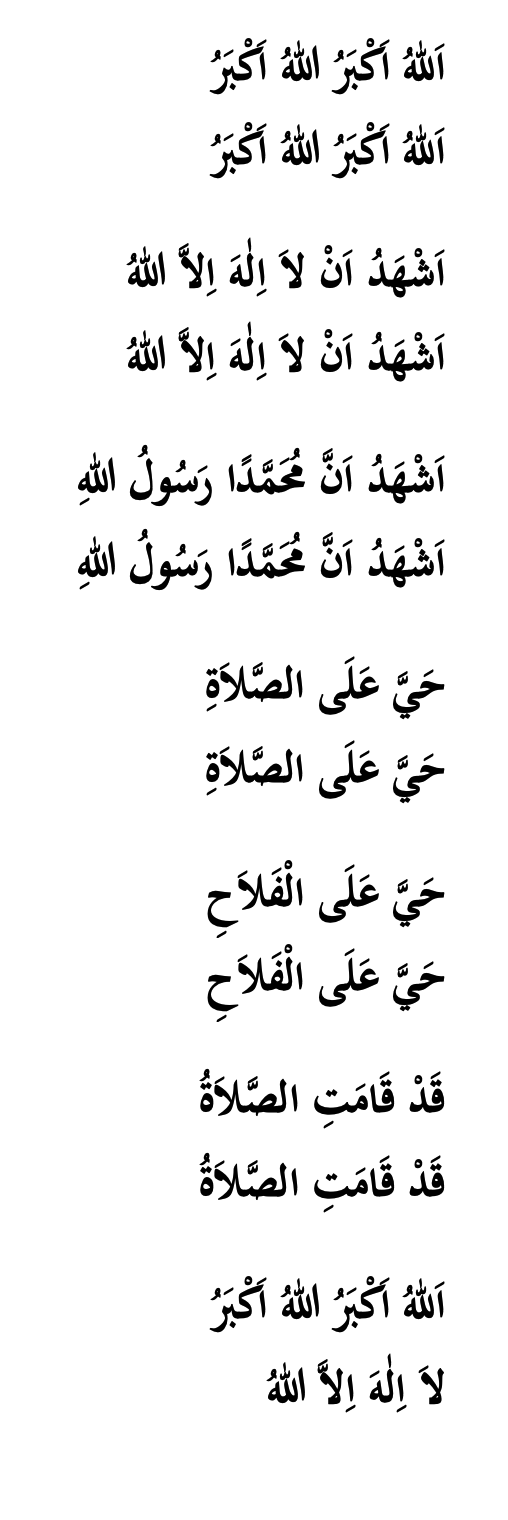 اَللّٰهُ اَكْبَرُ اللّٰهُ اَكْبَرُ
اَللّٰهُ اَكْبَرُ اللّٰهُ اَكْبَرُ
اَشْهَدُ اَنْ لاَ اِلٰهَ اِلاَّ اللّٰهُ
اَشْهَدُ اَنْ لاَ اِلٰهَ اِلاَّ اللّٰهُ
اَشْهَدُ اَنَّ مُحَمَّدًا رَسُولُ اللّٰهِ
اَشْهَدُ اَنَّ مُحَمَّدًا رَسُولُ اللّٰهِ
حَيَّ عَلَى الصَّلاَةِ
حَيَّ عَلَى الصَّلاَةِ
حَيَّ عَلَى الْفَلاَحِ
حَيَّ عَلَى الْفَلاَحِ
قَدْ قَامَتِ الصَّلاَةُ
قَدْ قَامَتِ الصَّلاَةُ
اَللّٰهُ اَكْبَرُ اللّٰهُ اَكْبَرُ
لاَ اِلٰهَ اِلاَّ اللّٰهُ